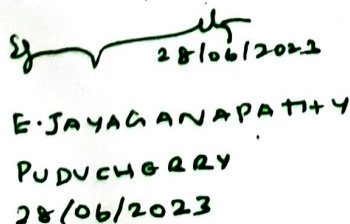 28/06/2023
E. JAYAGANAPATHY
PUDUCHERRY
28/06/2023